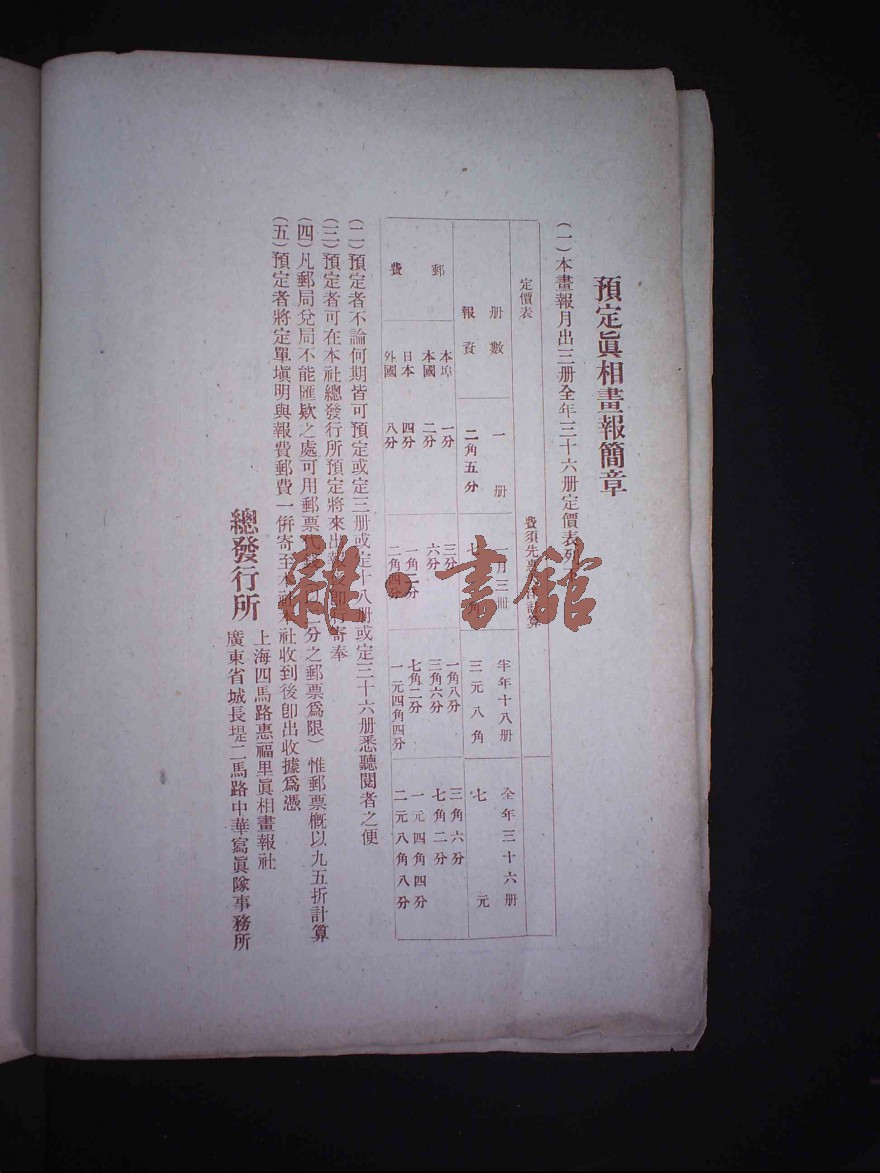 預定眞相畫報簡章
(一)本畫報月出三册全年三十六册定價表列
定價表 費須先惠 計算
册數 一册 一月三册 半年十八册 全年三十六册
報資 二角五分 七 三元八角 七元
郵費
本埠 一分 三分 一角八分 三角六分
本國 二分 六分 三角六分 七角二分
日本 四分 一角二分 七角二分 一元四角四分
外國 八分 二角四分 一元四角四分 二元八角八分
(二)預定者不論何期皆可預定或定三册或定十八册或定三十六册悉聽閱者之便
(三)預定者可在本社總發行所預定將來出 寄奉
(四)凡郵局兌局不能匯欵之處可用郵票代 二分之郵票爲限)惟郵票概以九五折計算
(五)預定者將定單塡明與報費郵費一倂寄至本 社收到後卽出收據爲憑
總發行所
上海四馬路惠福里眞相畫報社
廣東省城長堤二馬路中華寫眞隊事務所
雜·書館